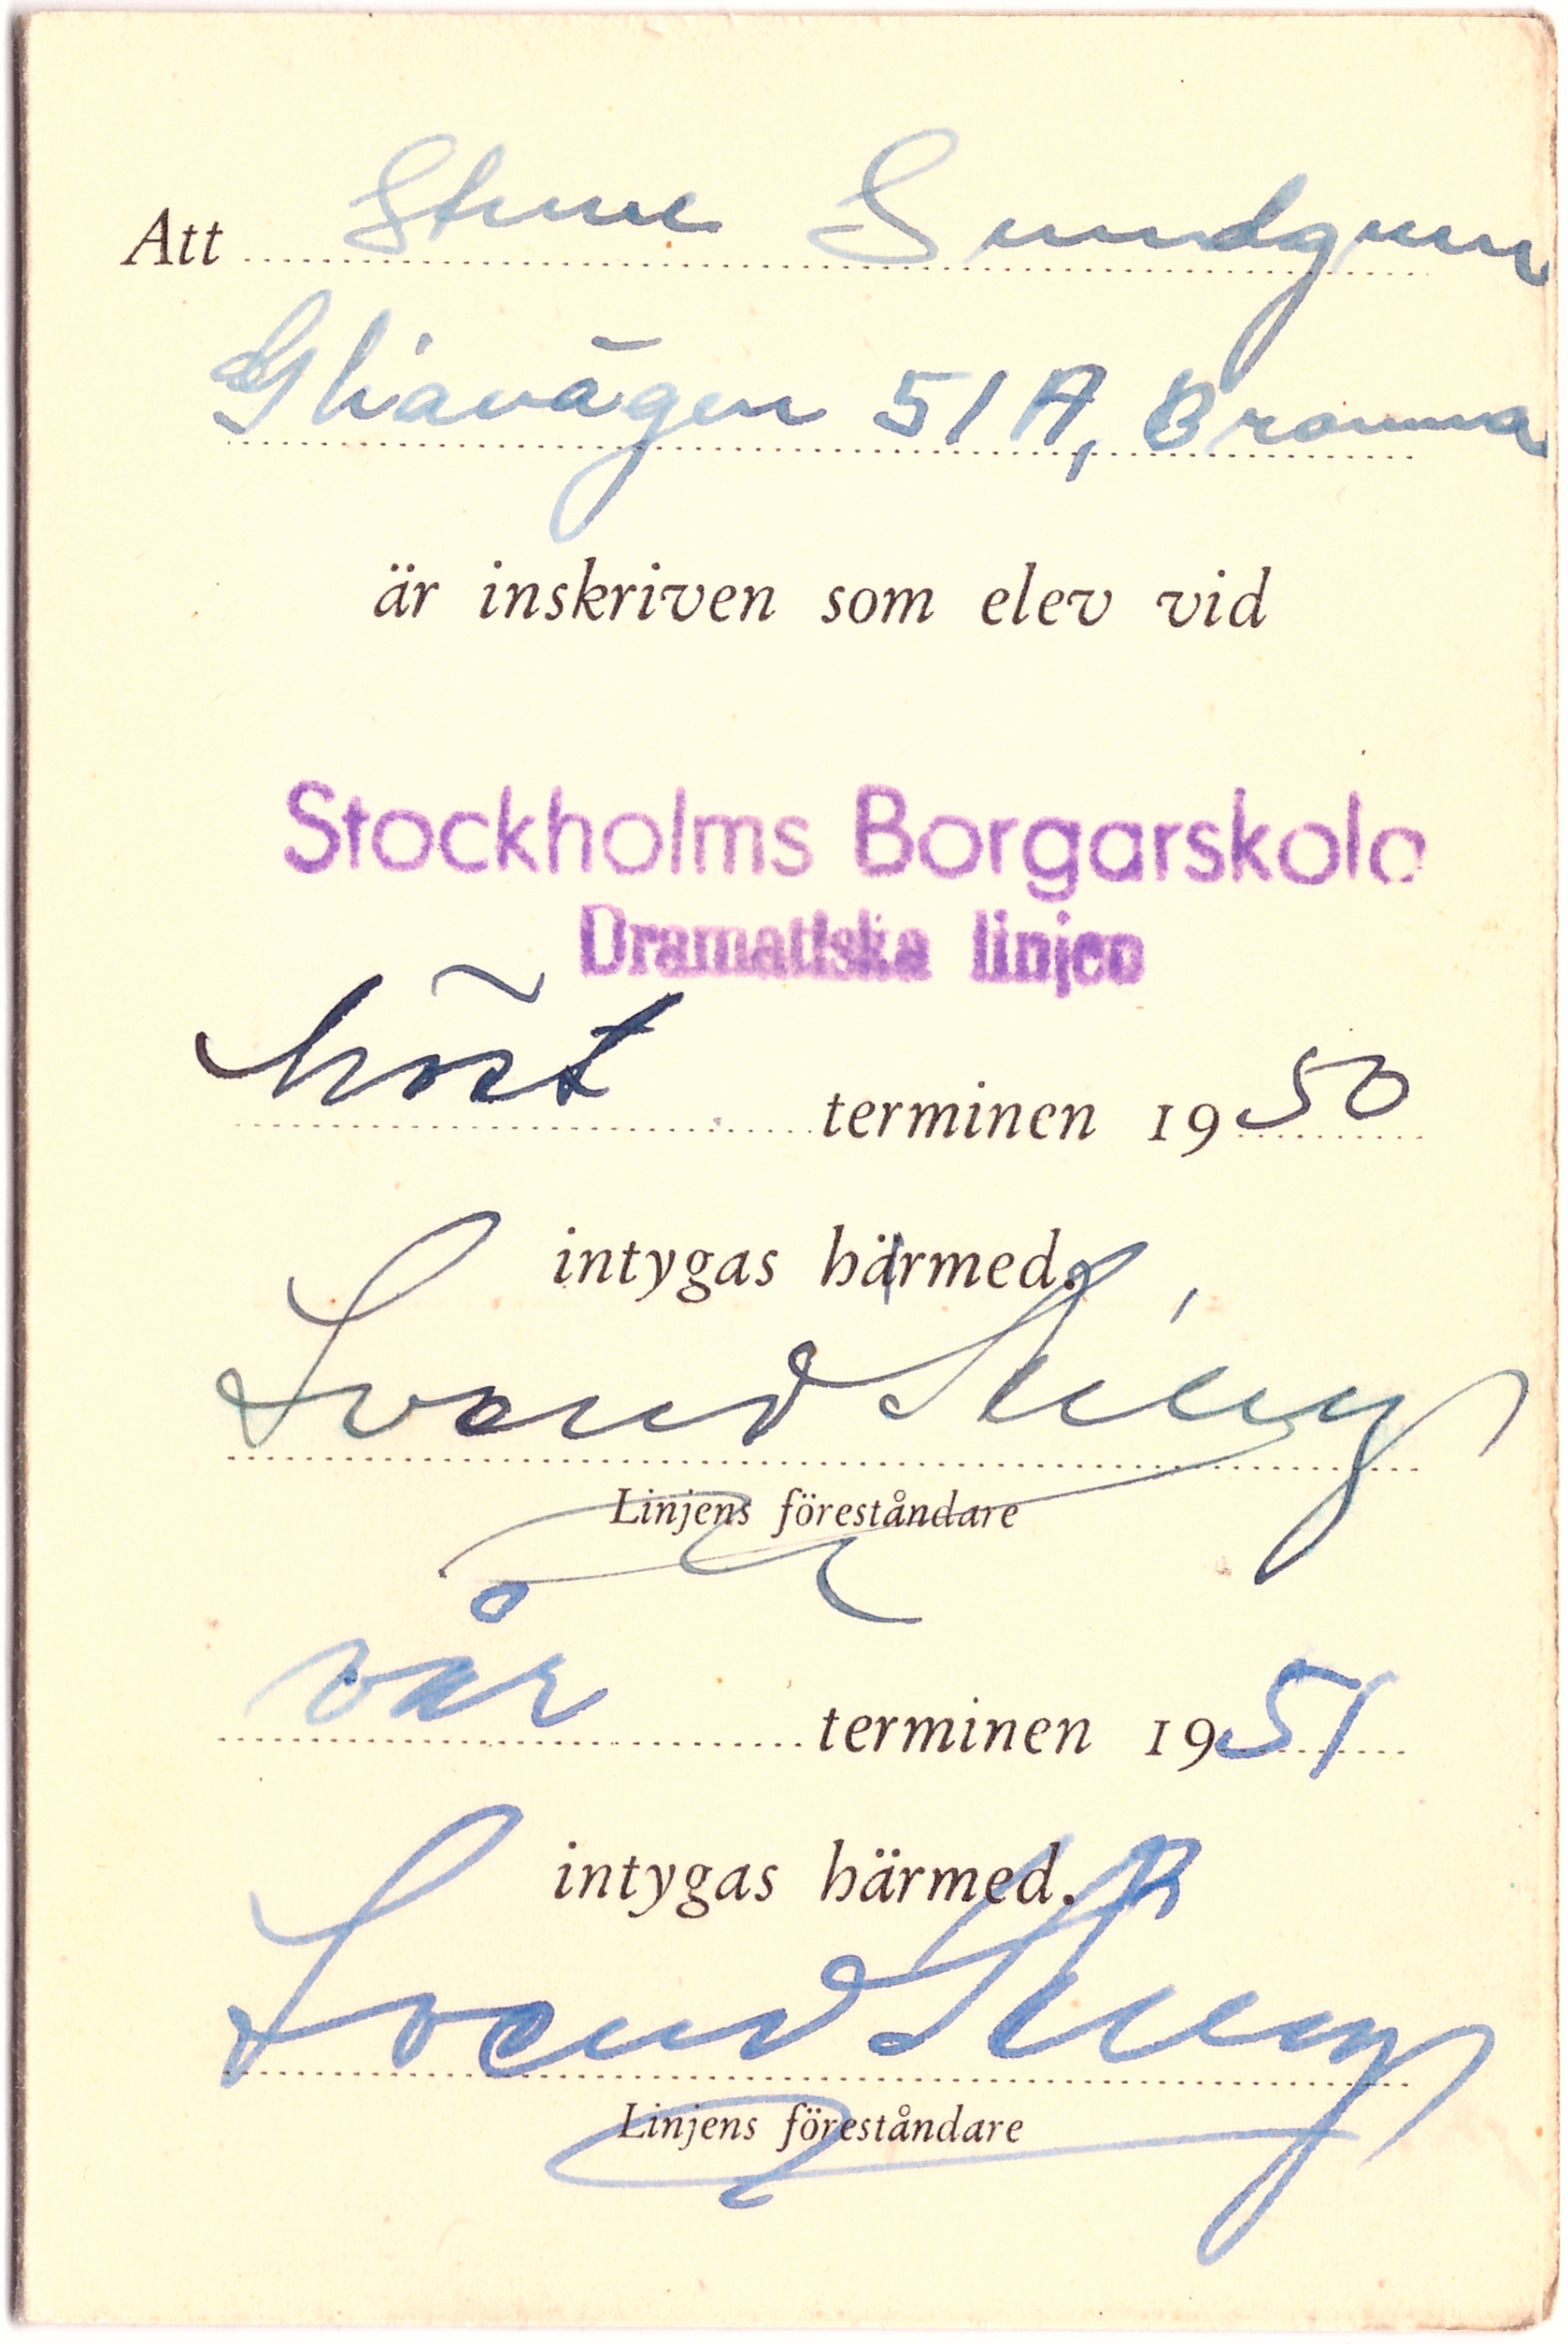 Att Sture Sundgren
Gliavägen 51 A, Bromma
är inskriven som elev vid
Stockholms Borgarskola
Dramatiska linjen
höst terminen 1950
intygas härmed.
Linjens föreståndare
vår terminen 1951
intygas härmed.
Linjens föreståndare